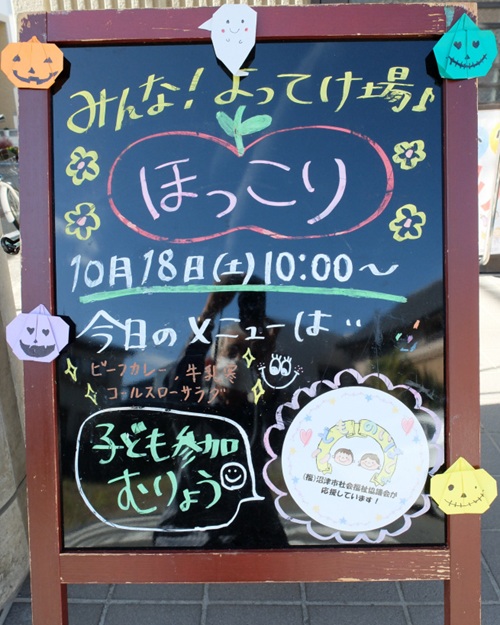 みんな!よってけ場♪
ほっこり
10月18日(土)10:00〜
今日のメニューは‥
ビーフカレー、牛乳寒
コールスローサラダ
子ども参加
むりょう
(福)沼津市社会福祉協議会が
応援しています!